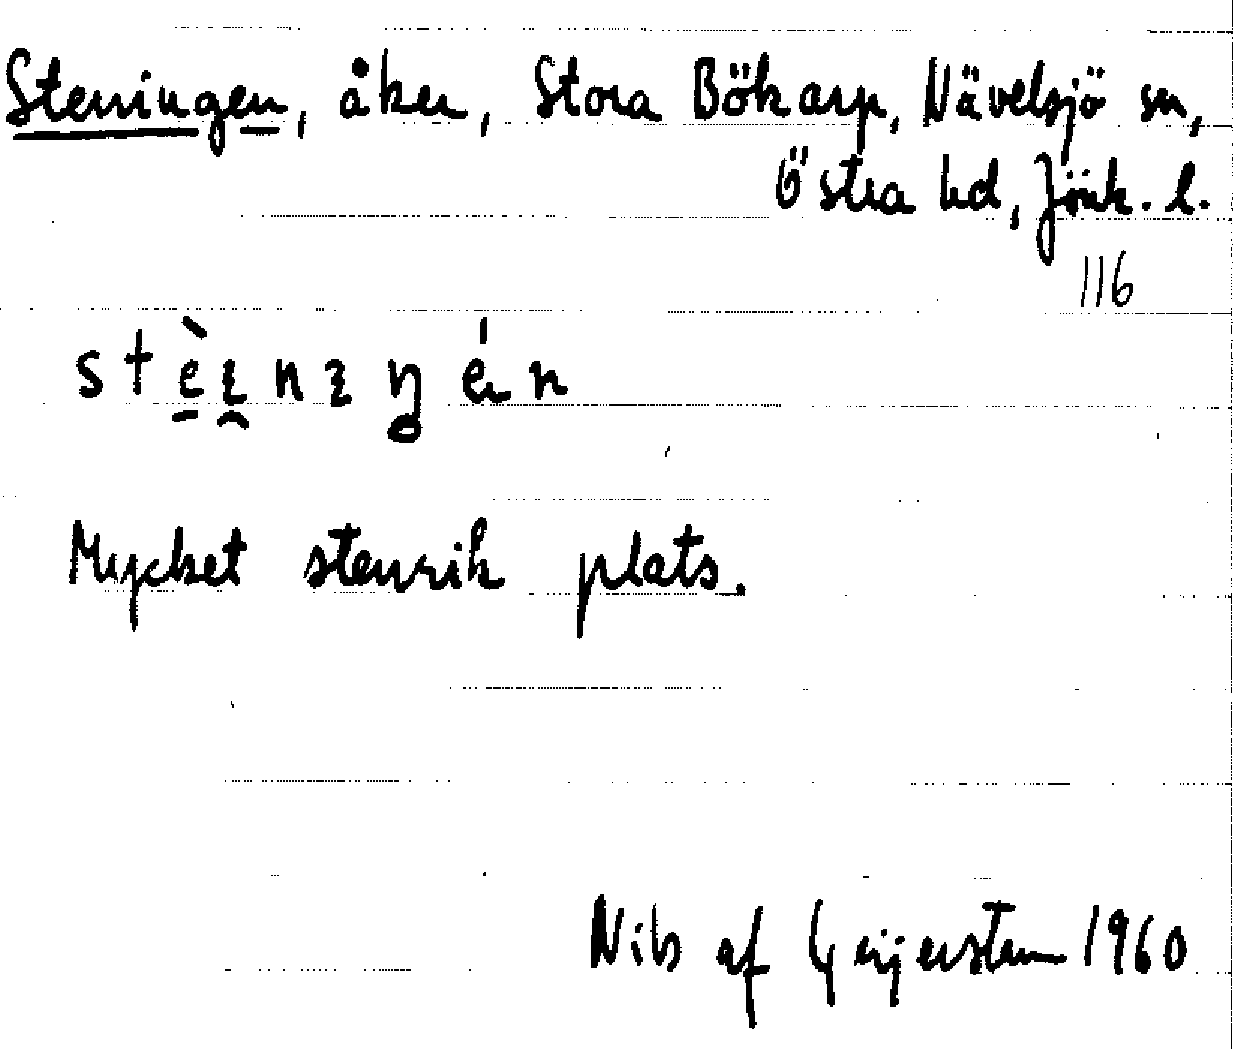 Stenningen, åker, Stora Bökarp, Nävelsjö sn,
Östra hd, Jönk. l.
116
Mycket stenrik plats.
Nils af Geijerstam 1960